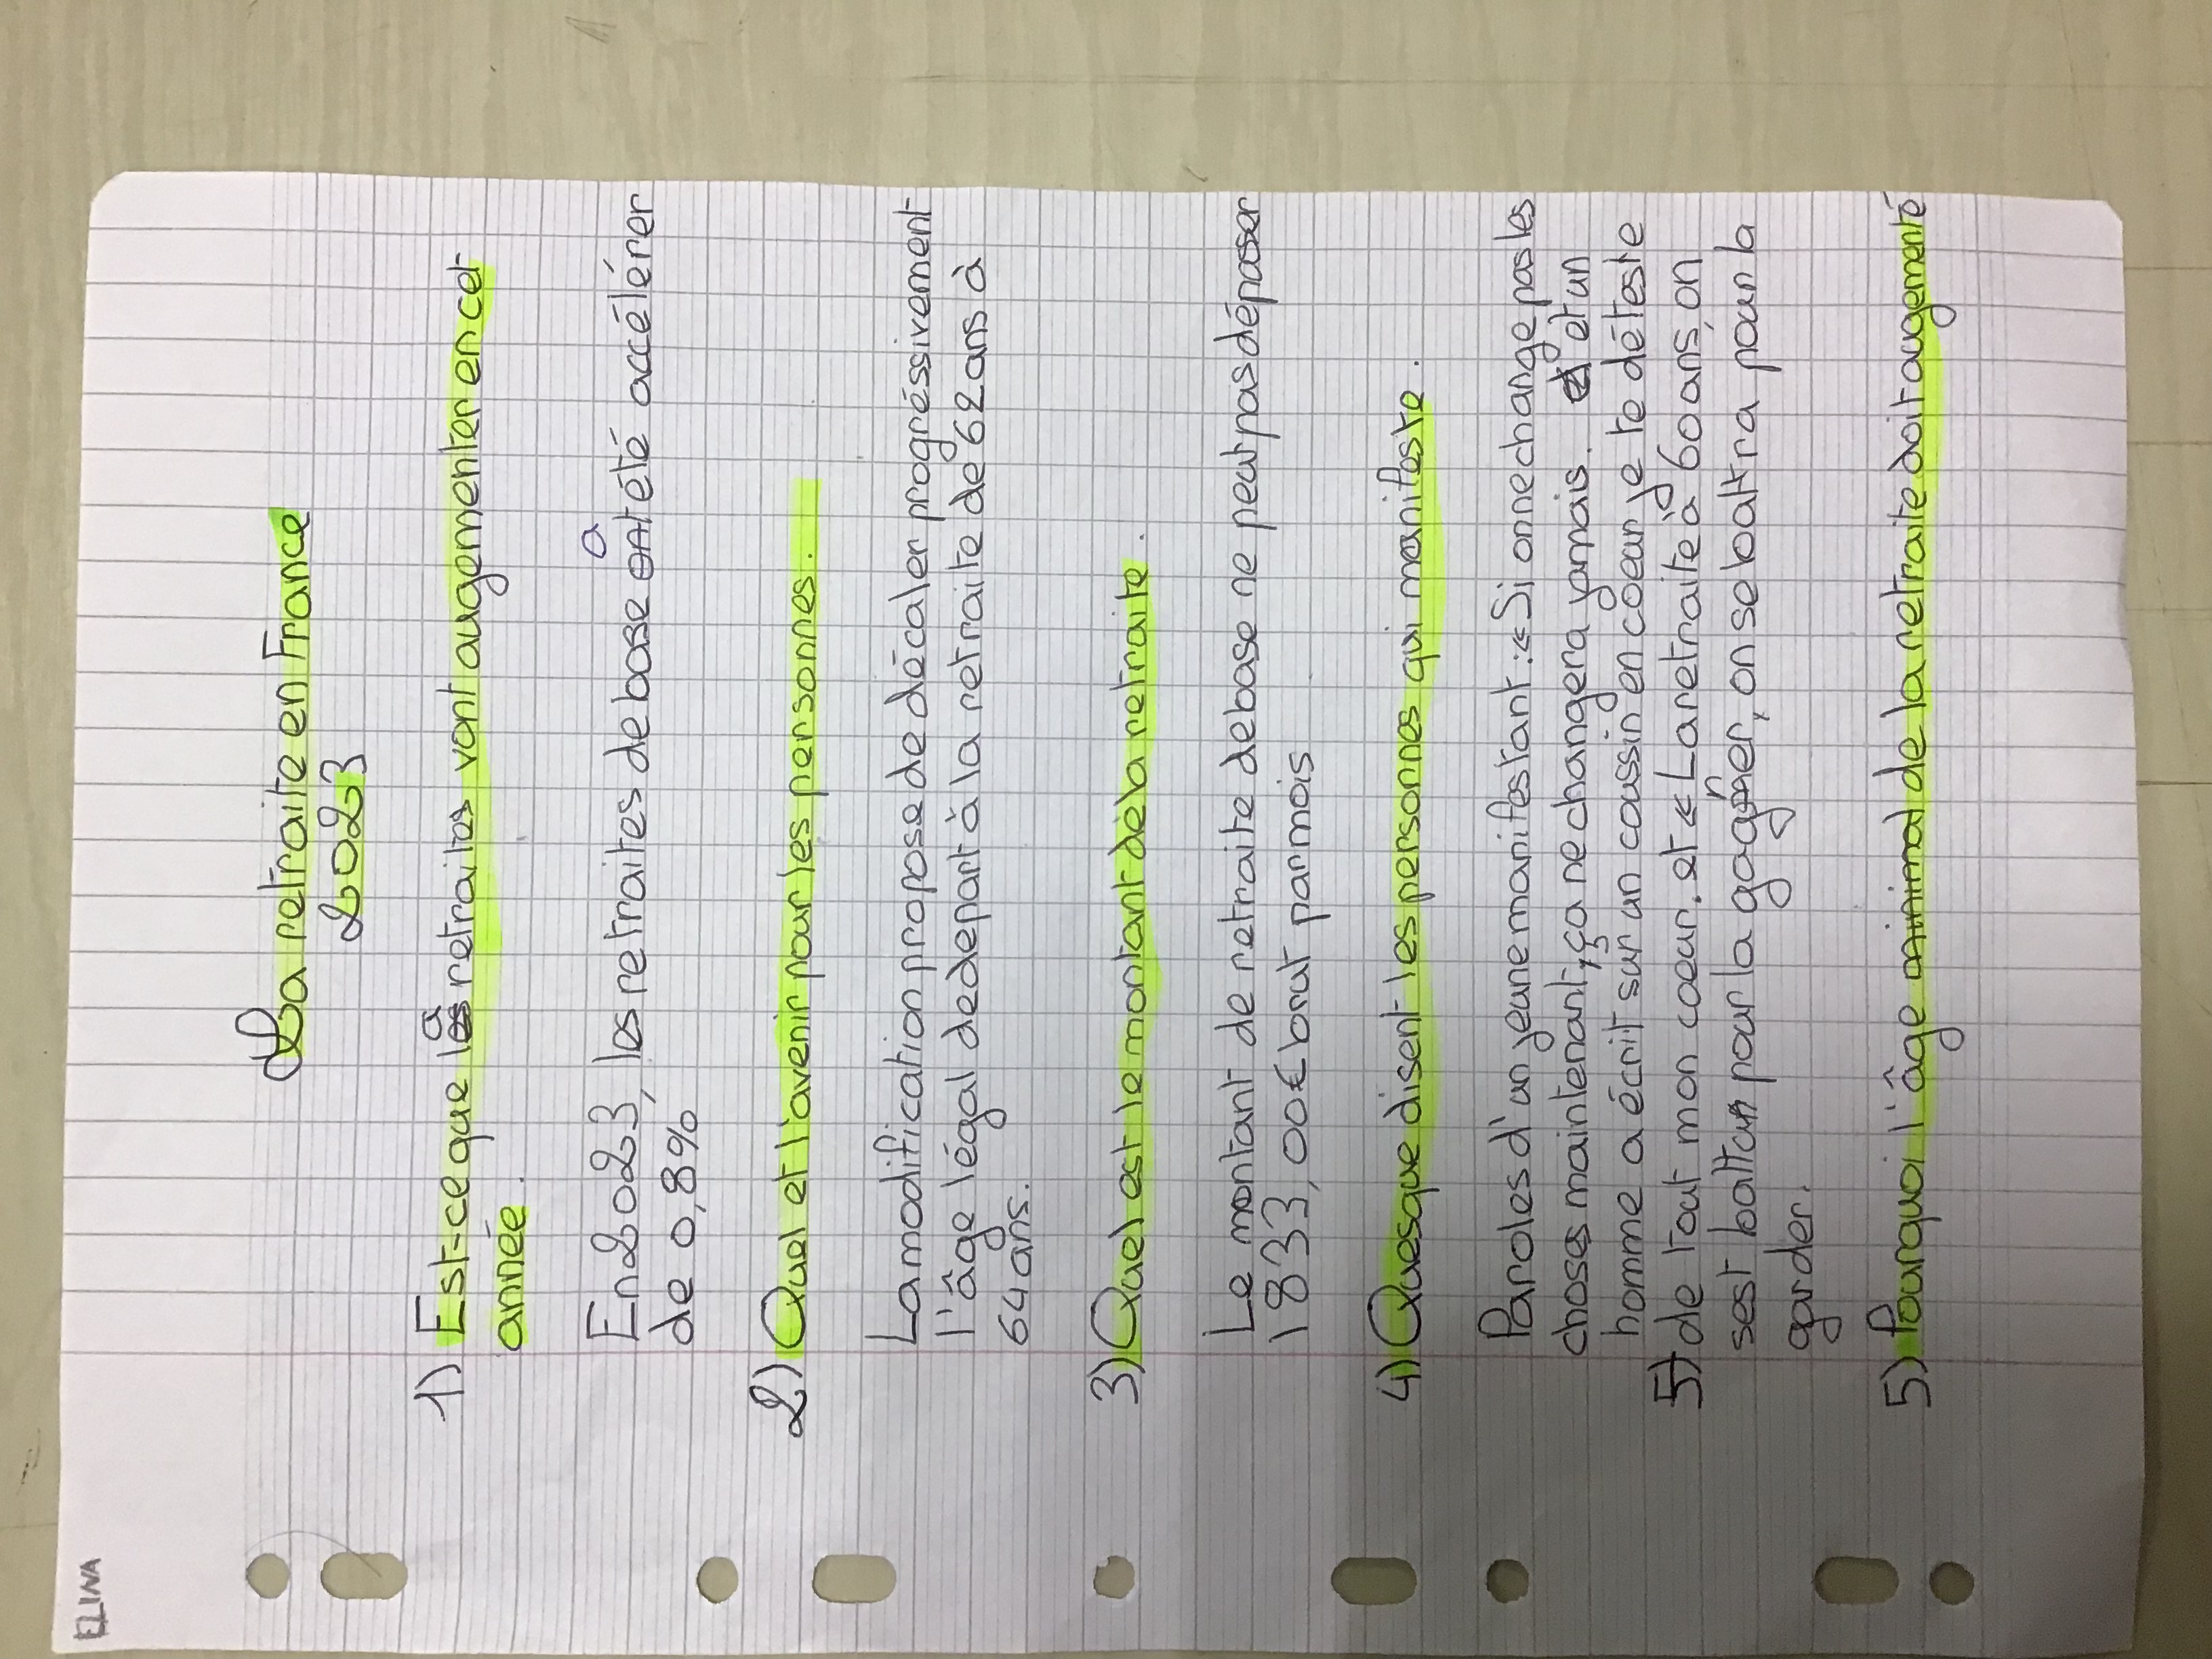 ELINA
La retraite en France
2023
1) Est-ce que la retraites vont augementer en cet
année.
En 2023, les retraites de base a été accélérer
de 0,8%
2) Quel et l'avenir pour les personnes.
La modification propose de décaler progréssivement
l'âge légal de depart à la retraite de 62 ans à
64 ans.
3) Quel est le montant de la retraite.
Le montant de retraite de base ne peut pas dépasser
1833,00€ brut par mois
4) Quesque disent les personnes qui manifeste.
Paroles d'un jeune manifestant : « Si on ne change pas les
choses maintenant, ça ne changera jamais. et un
homme a écrit sur un coussin en coeur je te déteste
de tout mon coeur. et « La retraite à 60 ans, on
sest battu pour la gagner, on se battra pour la
garder.
5) Pourquoi l'âge minimal de la retraite doit augementé